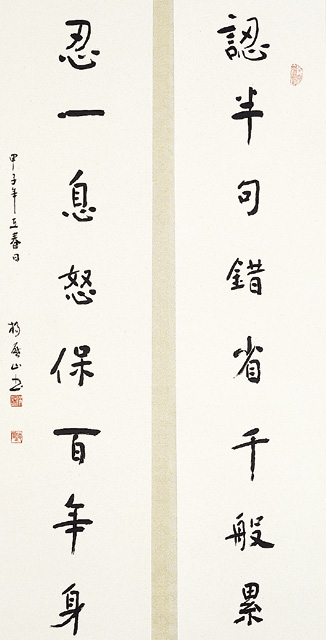 認半句錯省千般累
忍一息怒保百年身
甲子年立春日
楊啟山書